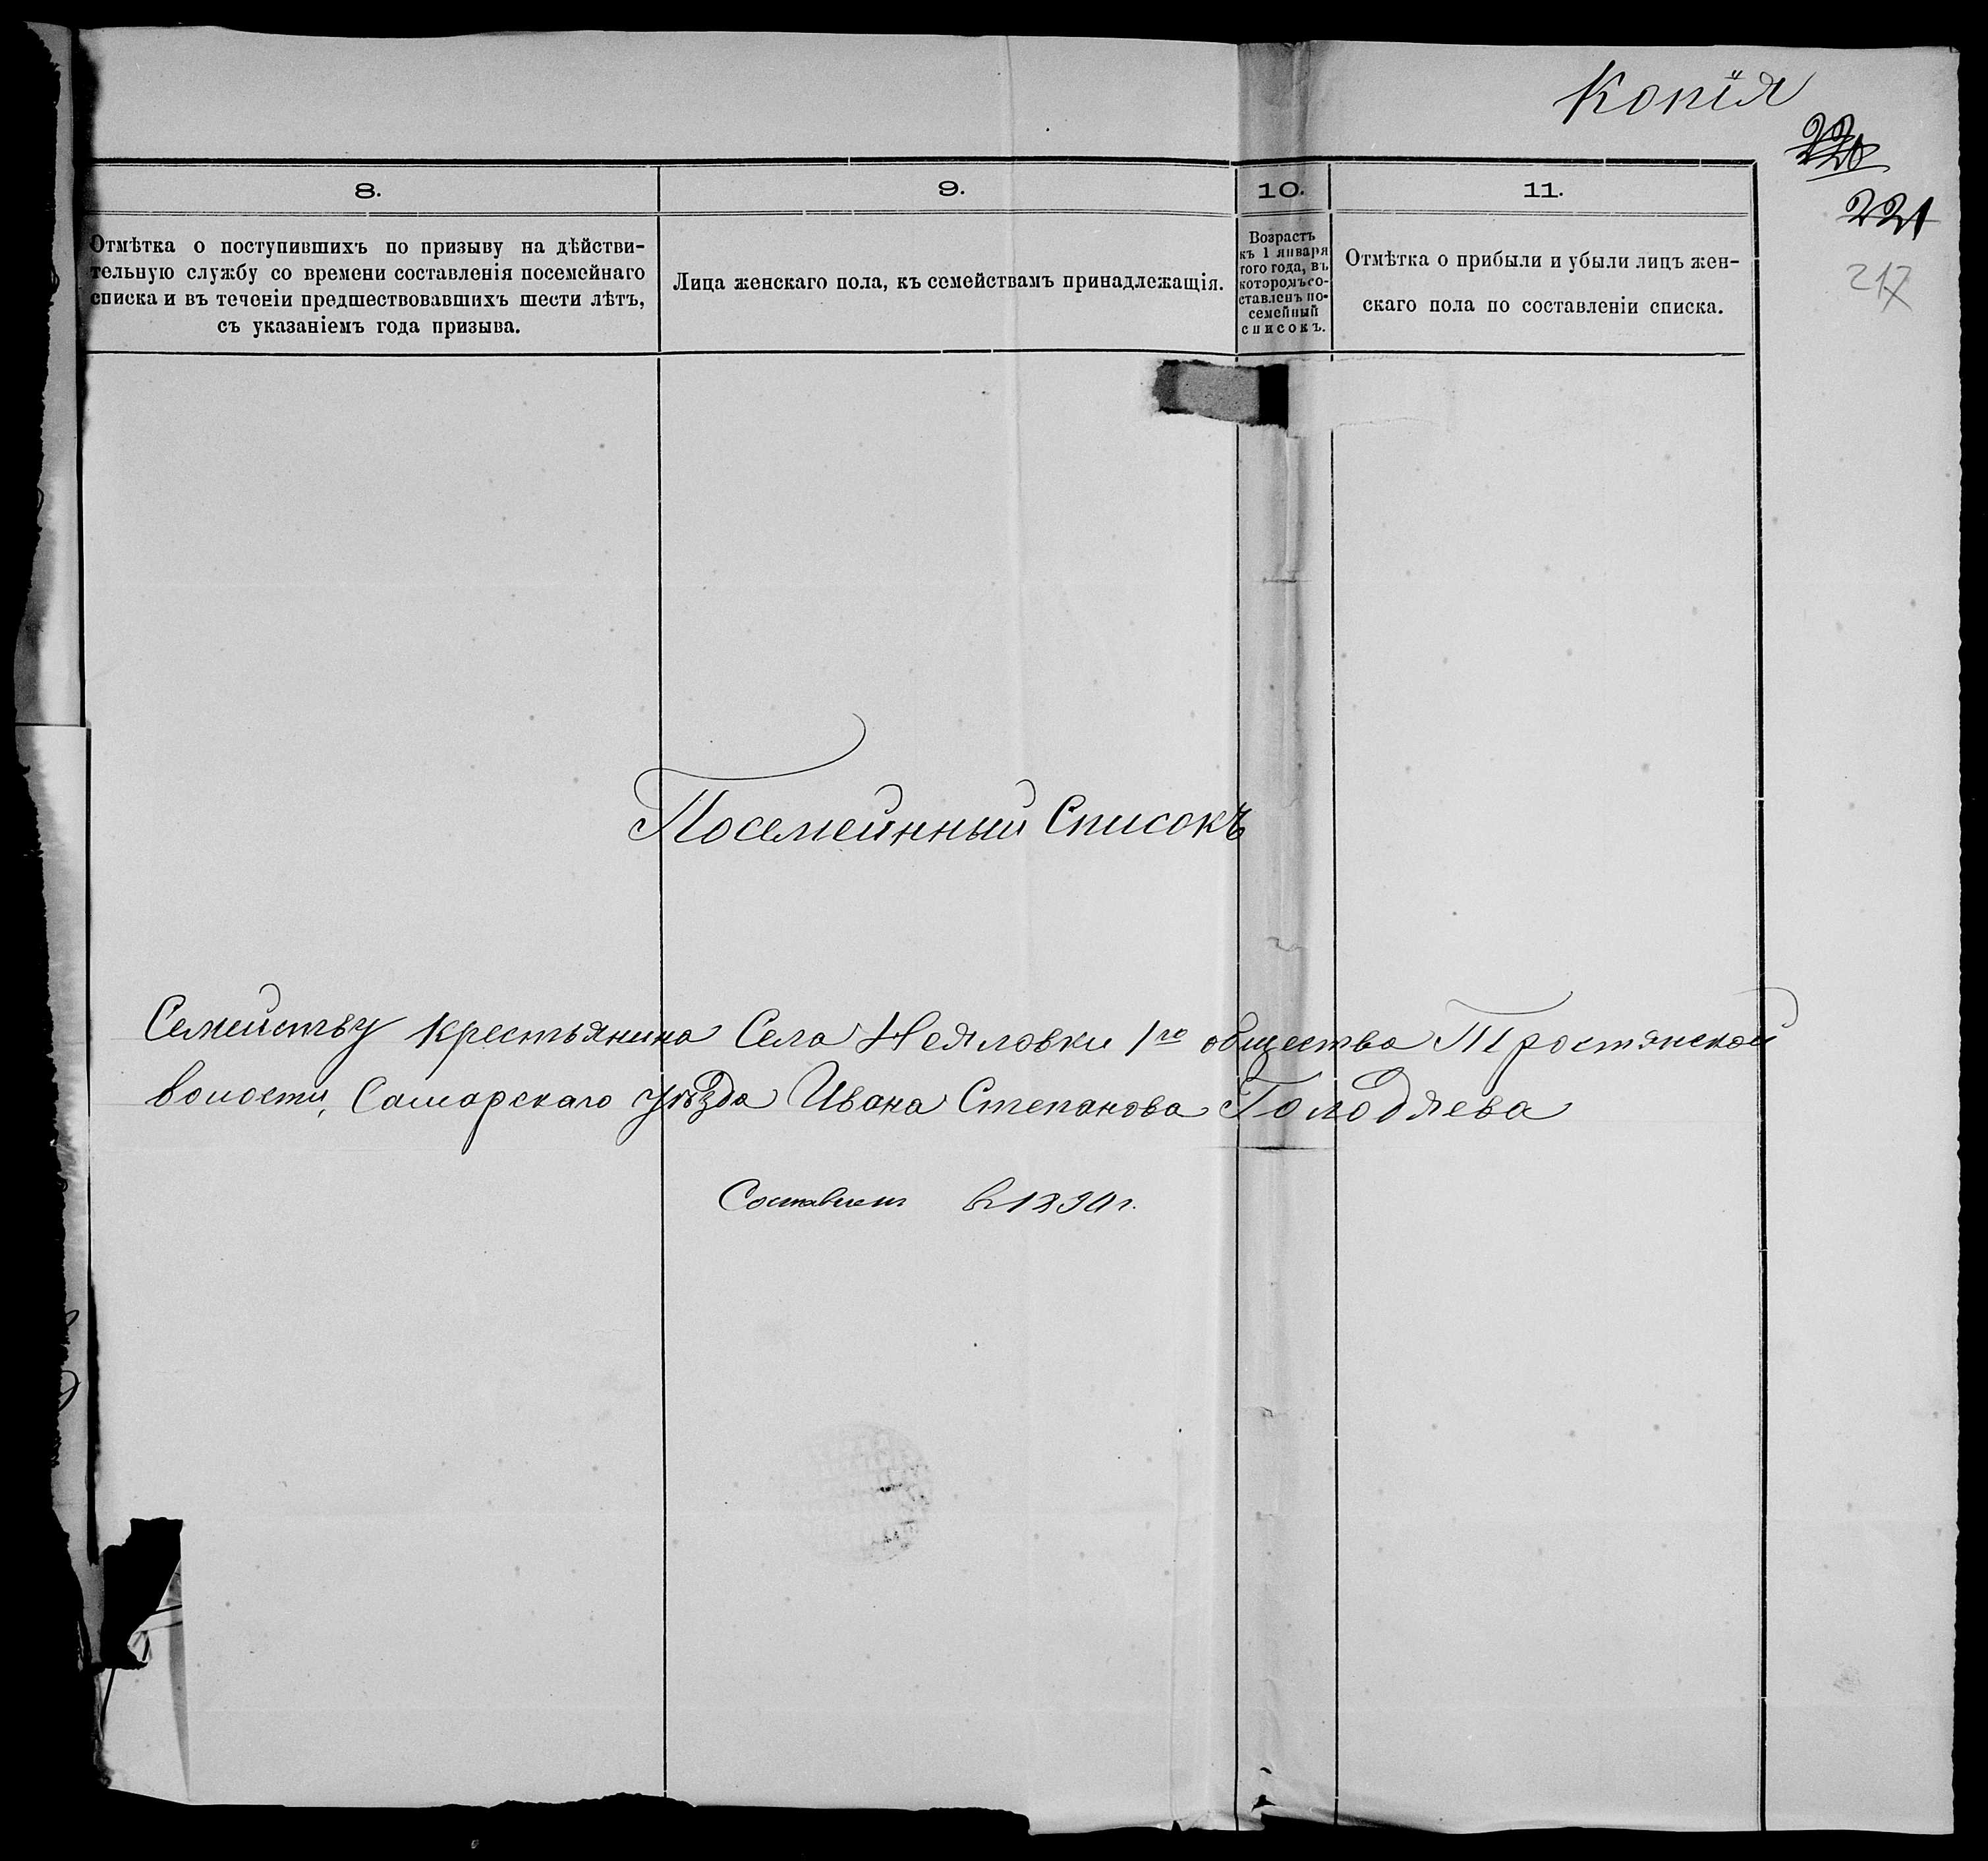 Копія
220
221
217
8.
9.
10.
11.
Отмѣтка о поступившихъ по призыву на дѣйстви-
тельную службу со времени составленія посемейнаго
списка и въ теченіи предшествовавшихъ шести лѣтъ,
съ указаніемъ года призыва.
Лица женскаго пола, къ семействамъ принадлежащія.
Возрастъ
къ 1 января
того года, въ
которомъ со-
ставленъ по-
семейный
списокъ.
Отмѣтка о прибыли и убыли лицъ жен-
скаго пола по составленіи списка.
Посемейнный Списокъ
Семейству крестьянина Села Неяловки 1го общества Тростянской
волости, Самарскаго уѣзда Ивана Степанова Голодяева
Составлен в 1890 г.